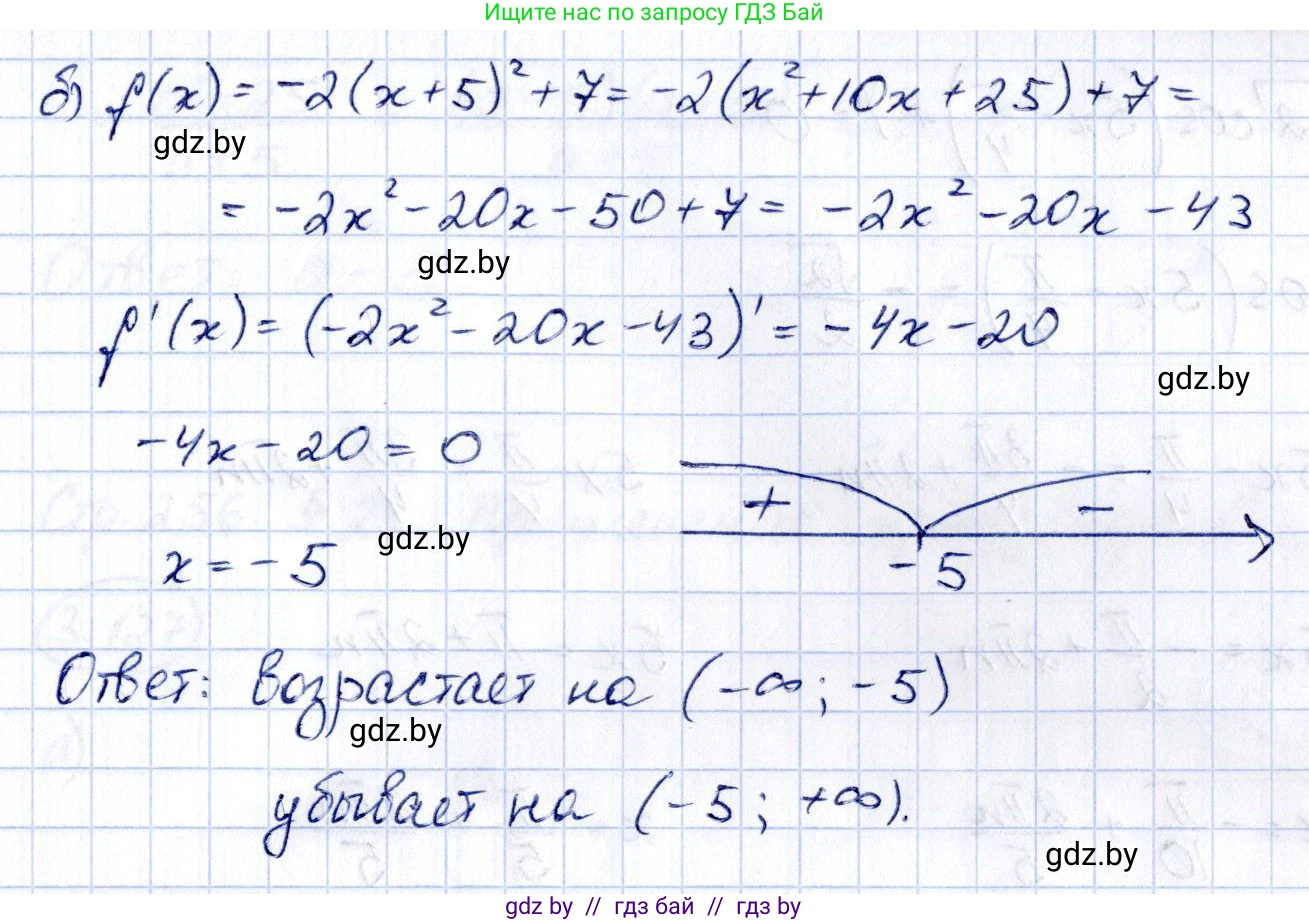 Ищите нас по запросу ГДЗ Бай
б) f(x) = -2(x+5)² + 7 = -2(x² + 10x + 25) + 7 =
gdz.by
= -2x² - 20x - 50 + 7 = -2x² - 20x - 43
gdz.by
f'(x) = (-2x² - 20x - 43)' = -4x - 20
gdz.by
-4x - 20 = 0
+ -
gdz.by
x = -5
-5
Ответ: возрастает на (-∞; -5)
gdz.by
убывает на (-5; +∞).
gdz.by
gdz.by // гдз бай // gdz.by